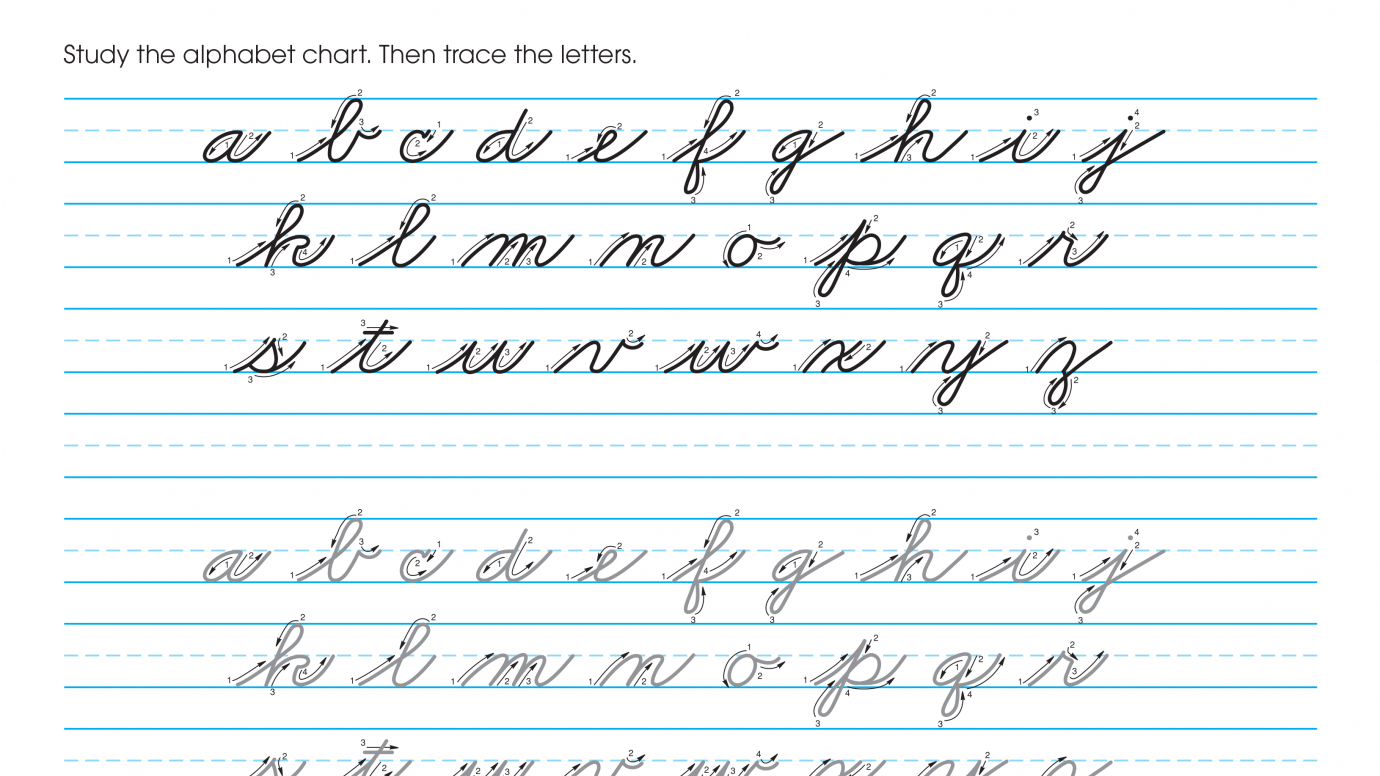 Study the alphabet chart. Then trace the letters.
a b c d e f g h i j
k l m n o p q r
s t u v w x y z
a b c d e f g h i j
k l m n o p q r
s t u v w x y z